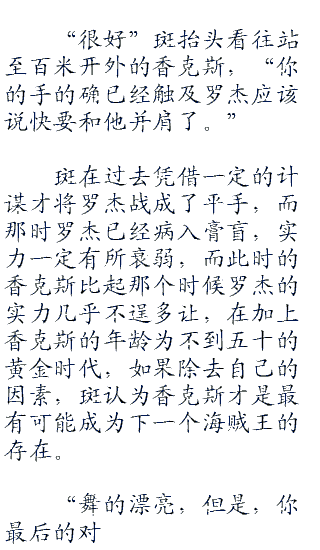 “很好”斑抬头看往站
至百米开外的香克斯，“你
的手的确已经触及罗杰应该
说快要和他并肩了。”
斑在过去凭借一定的计
谋才将罗杰战成了平手，而
那时罗杰已经病入膏肓，实
力一定有所衰弱，而此时的
香克斯比起那个时候罗杰的
实力几乎不逞多让，在加上
香克斯的年龄为不到五十的
黄金时代，如果除去自己的
因素，斑认为香克斯才是最
有可能成为下一个海贼王的
存在。
“舞的漂亮，但是，你
最后的对